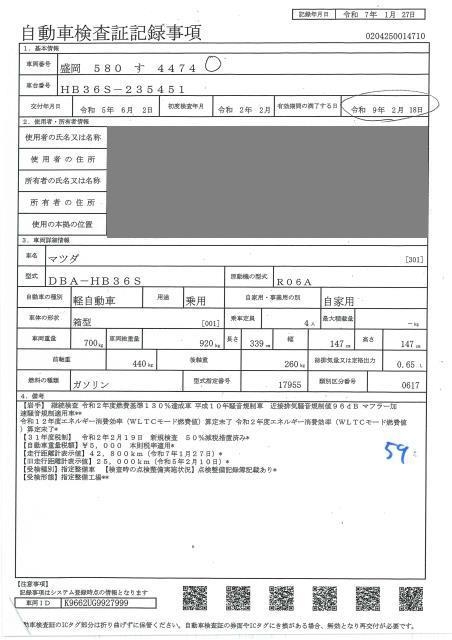 記録年月日 令和 7年 1月 27日
自動車検査証記録事項
0204250014710
1. 基本情報
車両番号 盛岡 580 す 4474
車台番号 HB36S-235451
交付年月日 令和 5年 6月 2日 初度検査年月 令和 2年 2月 有効期間の満了する日 令和 9年 2月 18日
2. 使用者・所有者情報
使用者の氏名又は名称
使用者の住所
所有者の氏名又は名称
所有者の住所
使用の本拠の位置
3. 車両詳細情報
車名 マツダ [301]
型式 DBA-HB36S 原動機の型式 R06A
自動車の種別 軽自動車 用途 乗用 自家用・事業用の別 自家用
車体の形状 箱型 [001] 乗車定員 4人 最大積載量 -kg
車両重量 700kg 車両総重量 920kg 長さ 339cm 幅 147cm 高さ 147cm
前軸重 440kg 後軸重 260kg 総排気量又は定格出力 0.65 L
燃料の種類 ガソリン 型式指定番号 17955 類別区分番号 0617
4. 備考
【岩手】 継続検査 令和2年度燃費基準130%達成車 平成10年騒音規制車 近接排気騒音規制値96dB マフラー加
速騒音規制適用車**
令和12年度エネルギー消費効率(WLTCモード燃費値)算定未了 令和2年度エネルギー消費効率(WLTCモード燃費値
)算定未了*
【31年度税制】 令和2年2月19日 新規検査 50%減税措置済み*
【自動車重量税額】¥5,000 本則税率適用*
【走行距離計表示値】42,800km(令和7年1月27日)*
【旧走行距離計表示値】25,000km(令和5年2月10日)*
【受検種別】指定整備車 【検査時の点検整備実施状況】点検整備記録簿記載あり*
【受検形態】指定整備工場**
59
【注意事項】
記録事項はシステム登録時点の情報となります
車両ID K9662UG9927999
自動車検査証のICタグ部分は折り曲げずに保管ください。自動車検査証の券面やICタグにき損がある場合、無効となり再交付が必要です。